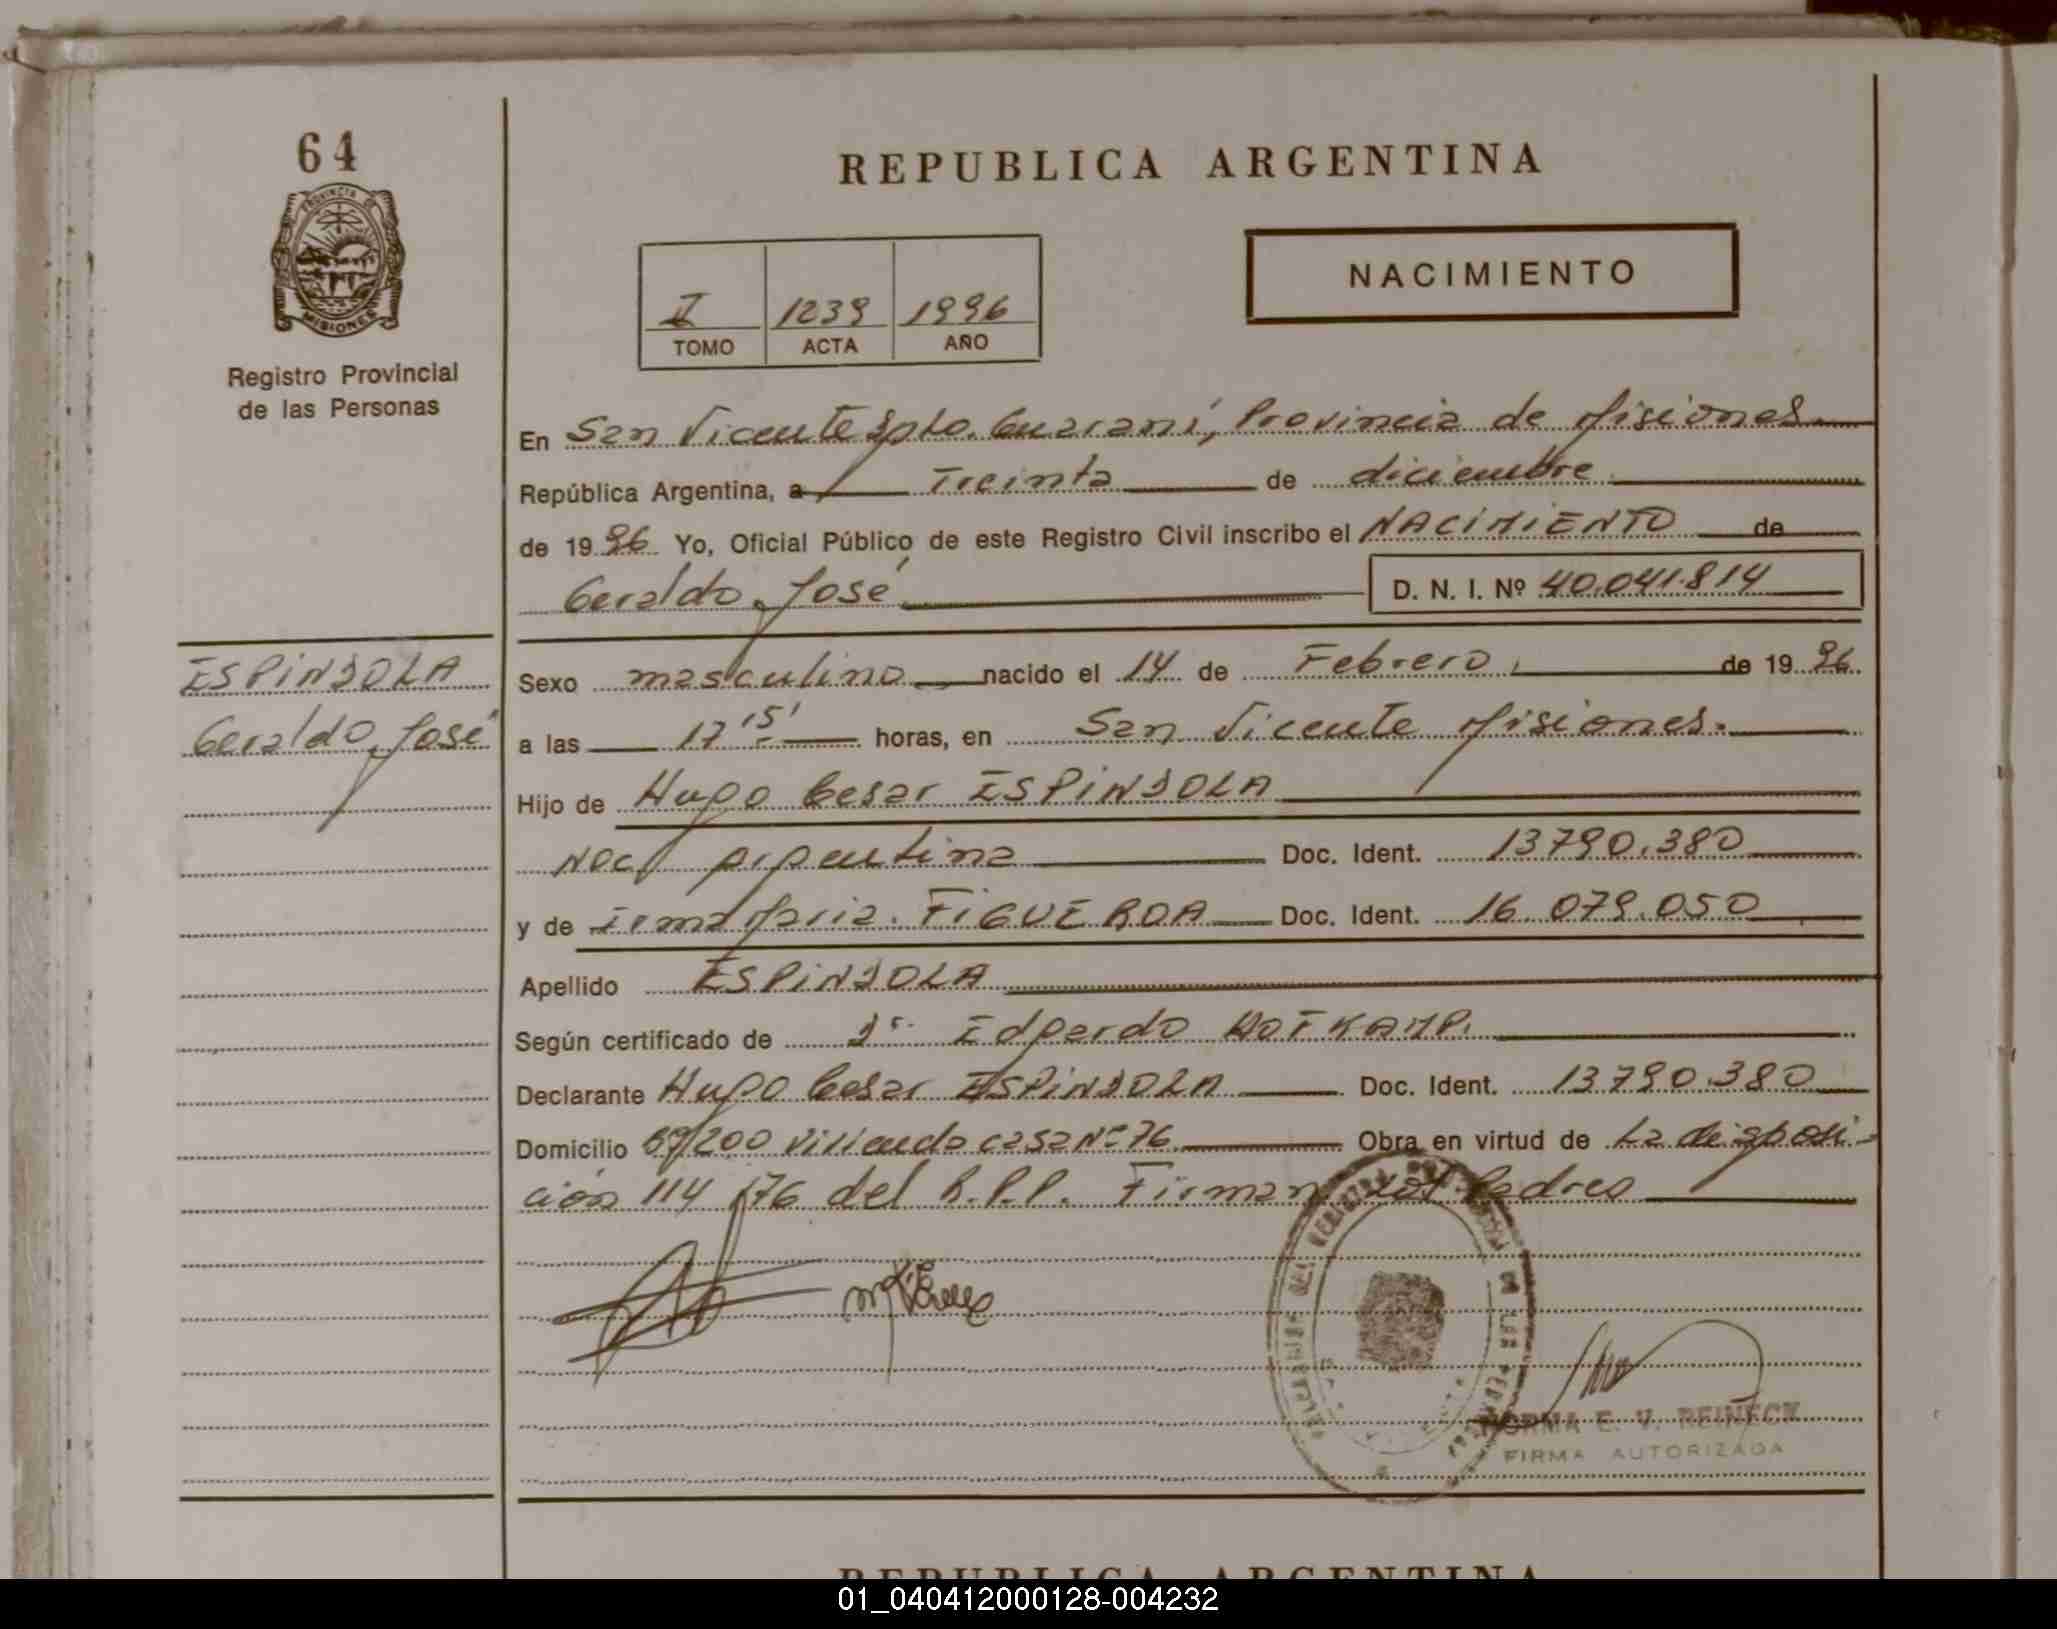 64
PROVINCIA DE
MISIONES
Registro Provincial
de las Personas
REPUBLICA ARGENTINA
1239 1996
TOMO ACTA AÑO
NACIMIENTO
En San Vicente Dpto. Guaraní, Provincia de Misiones
República Argentina, a Treinta de diciembre
de 1996 Yo, Oficial Público de este Registro Civil inscribo el NACIMIENTO de
Geraldo José D. N. I. Nº 40.041.814
ESPINDOLA
Geraldo José
Sexo masculino nacido el 14 de Febrero de 1996
a las 17 15' horas, en San Vicente Misiones.
Hijo de Hugo Cesar ESPINDOLA
Nac Argentina Doc. Ident. 13790.380
y de Irma Maria FIGUEROA Doc. Ident. 16.079.050
Apellido ESPINDOLA
Según certificado de Dr. Edgardo HOFKAMP.
Declarante Hugo Cesar ESPINDOLA Doc. Ident. 13790.380
Domicilio vivienda casa Nº 76 Obra en virtud de La disposi-
ción 114/76 del R.P.P. Firman los Padres
NORMA E. V. REINECK
FIRMA AUTORIZADA
REPUBLICA ARGENTINA
01_040412000128-004232